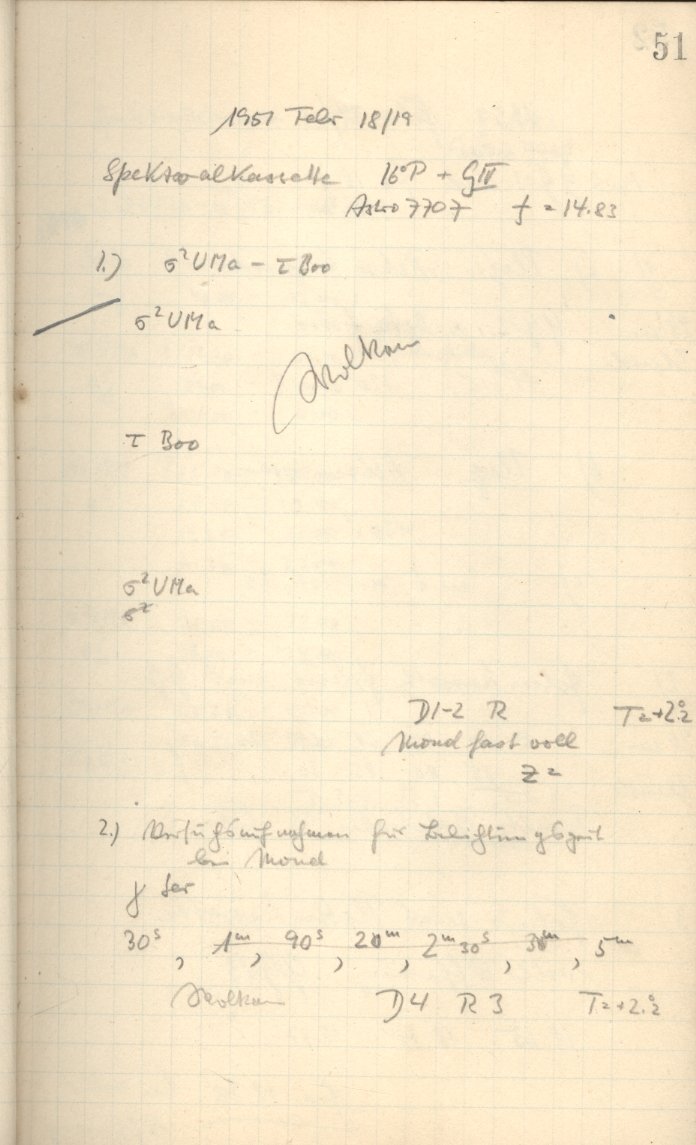 51
1951 Febr 18/19
Spektralkassette 16°P + GII
Astro 7707 f = 14.83
1.) σ²UMa – τ Boo
σ²UMa
Wolken
τ Boo
σ²UMa
σ²
D1-2 R T=+2°.2
Mond fast voll
Z=
2.) Versuchsaufnahmen für Belichtungszeit
bei Mond
γ Ser
30ˢ, 1ᵐ, 90ˢ, 2ᵐ, 2ᵐ30ˢ, 3ᵐ, 5ᵐ
Wolken D4 R3 T=+2°.2